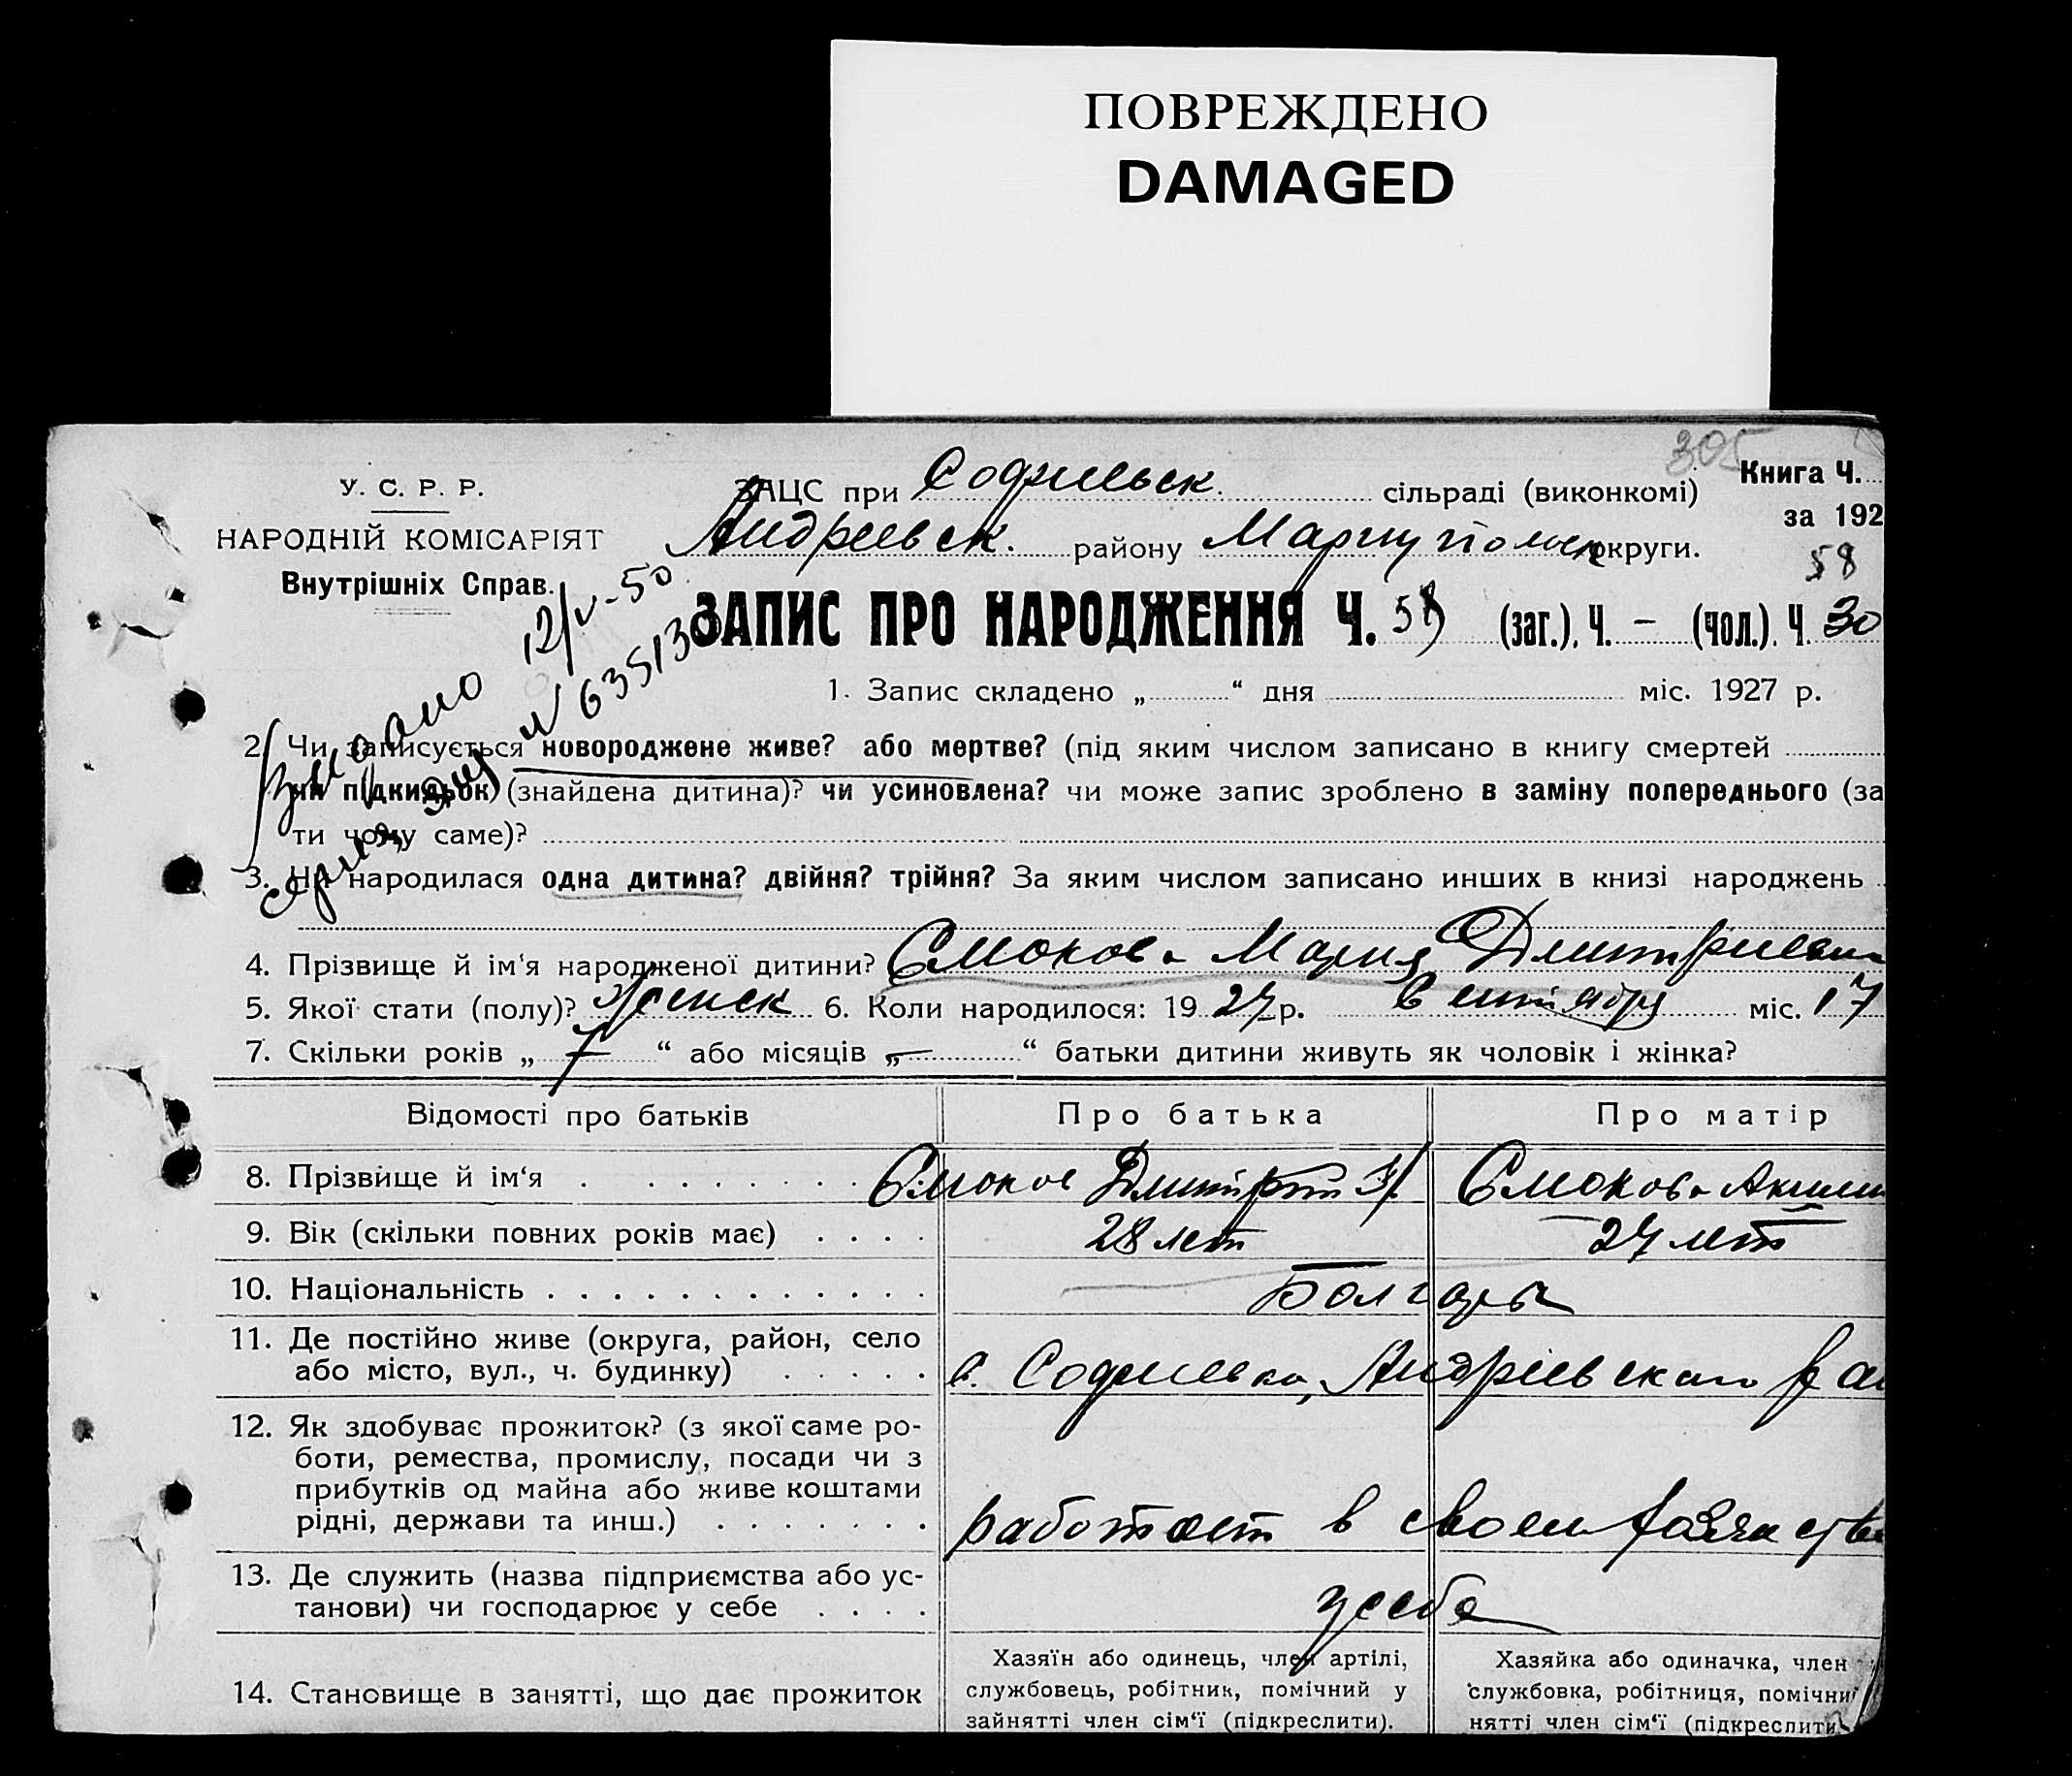 ПОВРЕЖДЕНО
DAMAGED
305
У. С. Р. Р.
НАРОДНІЙ КОМІСАРІЯТ
Внутрішніх Справ.
ЗАЦС при Софиевск. сільраді (виконкомі)
Андреевск. району Мариупольск округи.
Книга Ч.
за 192
58
12/V-50
№ 635130
ЗАПИС ПРО НАРОДЖЕННЯ Ч. 58 (заг.), Ч. – (чол.), Ч. 30
1. Запис складено „ “ дня міс. 1927 р.
2. Чи записується новороджене живе? або мертве? (під яким числом записано в книгу смертей
чи підкидьок (знайдена дитина)? чи усиновлена? чи може запис зроблено в заміну попереднього (за
ти чому саме)?
3. Чи народилася одна дитина? двійня? трійня? За яким числом записано инших в книзі народжень
4. Прізвище й ім'я народженої дитини? Смокова Мария Дмитриевн
5. Якої стати (полу)? Женск 6. Коли народилося: 1927 р. Сентября міс. 17
7. Скільки років „ 7 “ або місяців „ – “ батьки дитини живуть як чоловік і жінка?
Відомості про батьків Про батька Про матір
8. Прізвище й ім'я Смоков Дмитрий Смокова
9. Вік (скільки повних років має) 28 лет 27 лет
10. Національність Болгары
11. Де постійно живе (округа, район, село
або місто, вул., ч. будинку) с. Софиевка, Андріевскаго ра
12. Як здобуває прожиток? (з якої саме ро-
боти, ремества, промислу, посади чи з
прибутків од майна або живе коштами
рідні, держави та инш.) работает в своем хозяйстве
13. Де служить (назва підприємства або ус-
танови) чи господарює у себе у себе
14. Становище в занятті, що дає прожиток
Хазяїн або одинець, член артілі,
службовець, робітник, помічний у
зайнятті член сім'ї (підкреслити).
Хазяйка або одиначка, член
службовка, робітниця, помічни
нятті член сім'ї (підкреслити